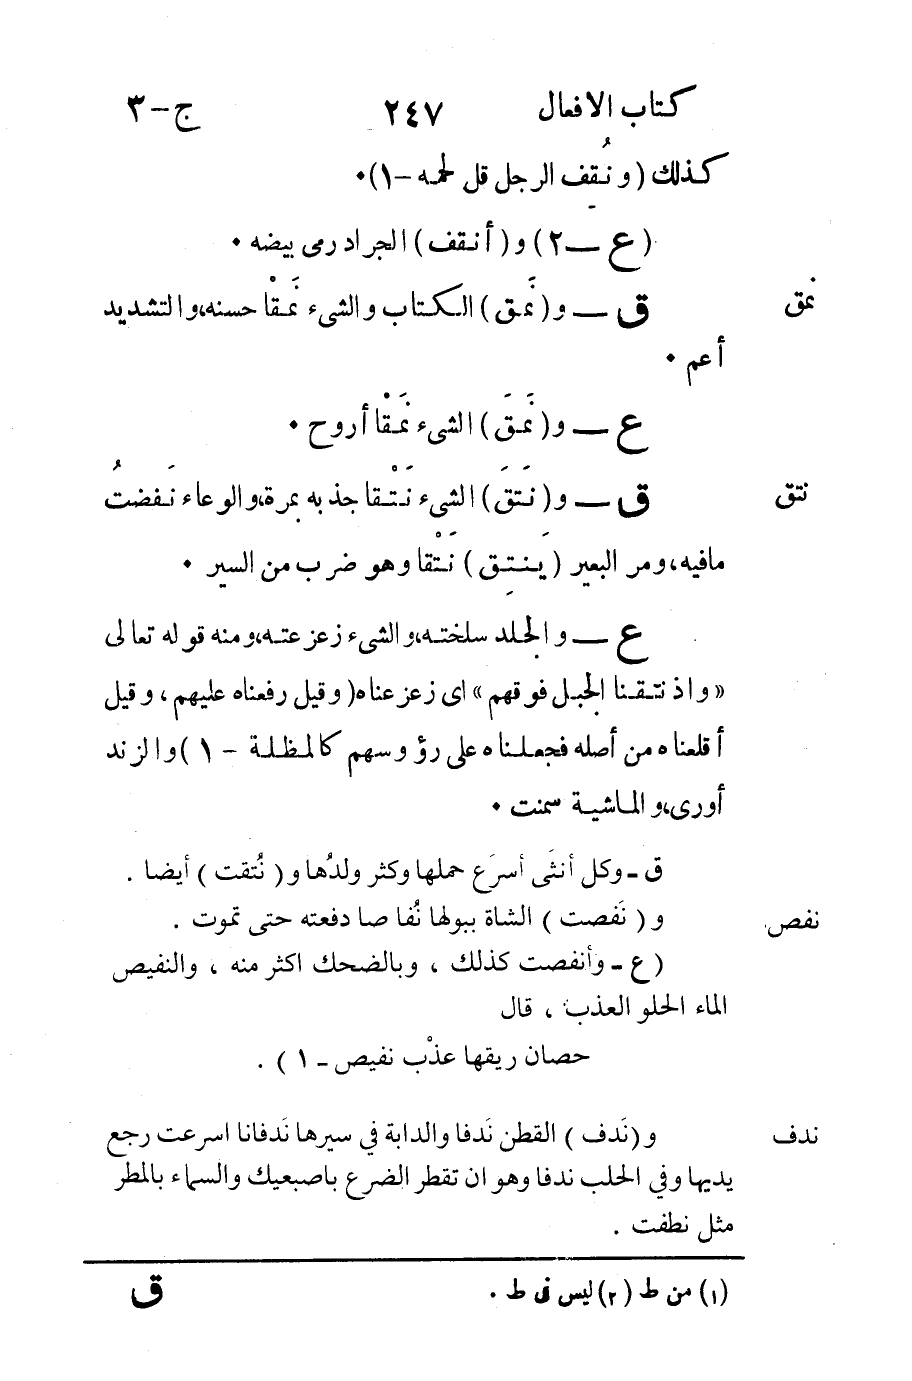 كتاب الافعال ٢٤٧ ج-٣
كذلك (ونُقِف الرجل قل لحمه -١)٠
(ع -٢) و(أنقف) الجراد رمى بيضه ٠
نمق ق - و(نَمق) الكتاب والشىء نَمْقا حسنه، والتشديد
أعم ٠
ع - و(نَمَقَ) الشىء نَمَقْا أروح ٠
نتق ق - و(نَتَقَ) الشىء نَتْقا جذبه بمرة، والوعاء نَفضتُ
مافيه، ومر البعير (يَنتِق) نَتْقا وهو ضرب من السير ٠
ع - والجلد سلخته، والشىء زعزعته، ومنه قوله تعالى
«واذ نتقنا الجبل فوقهم» اى زعزعناه (وقيل رفعناه عليهم، وقيل
أقلعناه من أصله فجعلناه على رؤوسهم كالمظلة - ١) والزند
أورى، والماشية سمنت ٠
ق - وكل أنثَى أسرَع حملها وكثر ولدُها و( نُتقت ) أيضا .
نفص و( نَفصت ) الشاة ببولها نُفا صا دفعته حتى تموت .
(ع - وأنفصت كذلك ، وبالضحك اكثر منه ، والنفيص
الماء الحلو العذب ، قال
حصان ريقها عذْب نفيص - ١ ) .
ندف و(نَدف ) القطن نَدفا والدابة في سيرها نَدفانا اسرعت رجع
يديها وفي الحلب ندفا وهو ان تقطر الضرع باصبعيك والسماء بالمطر
مثل نطفت .
(١) من ط (٢) ليس فى ط ٠ ق